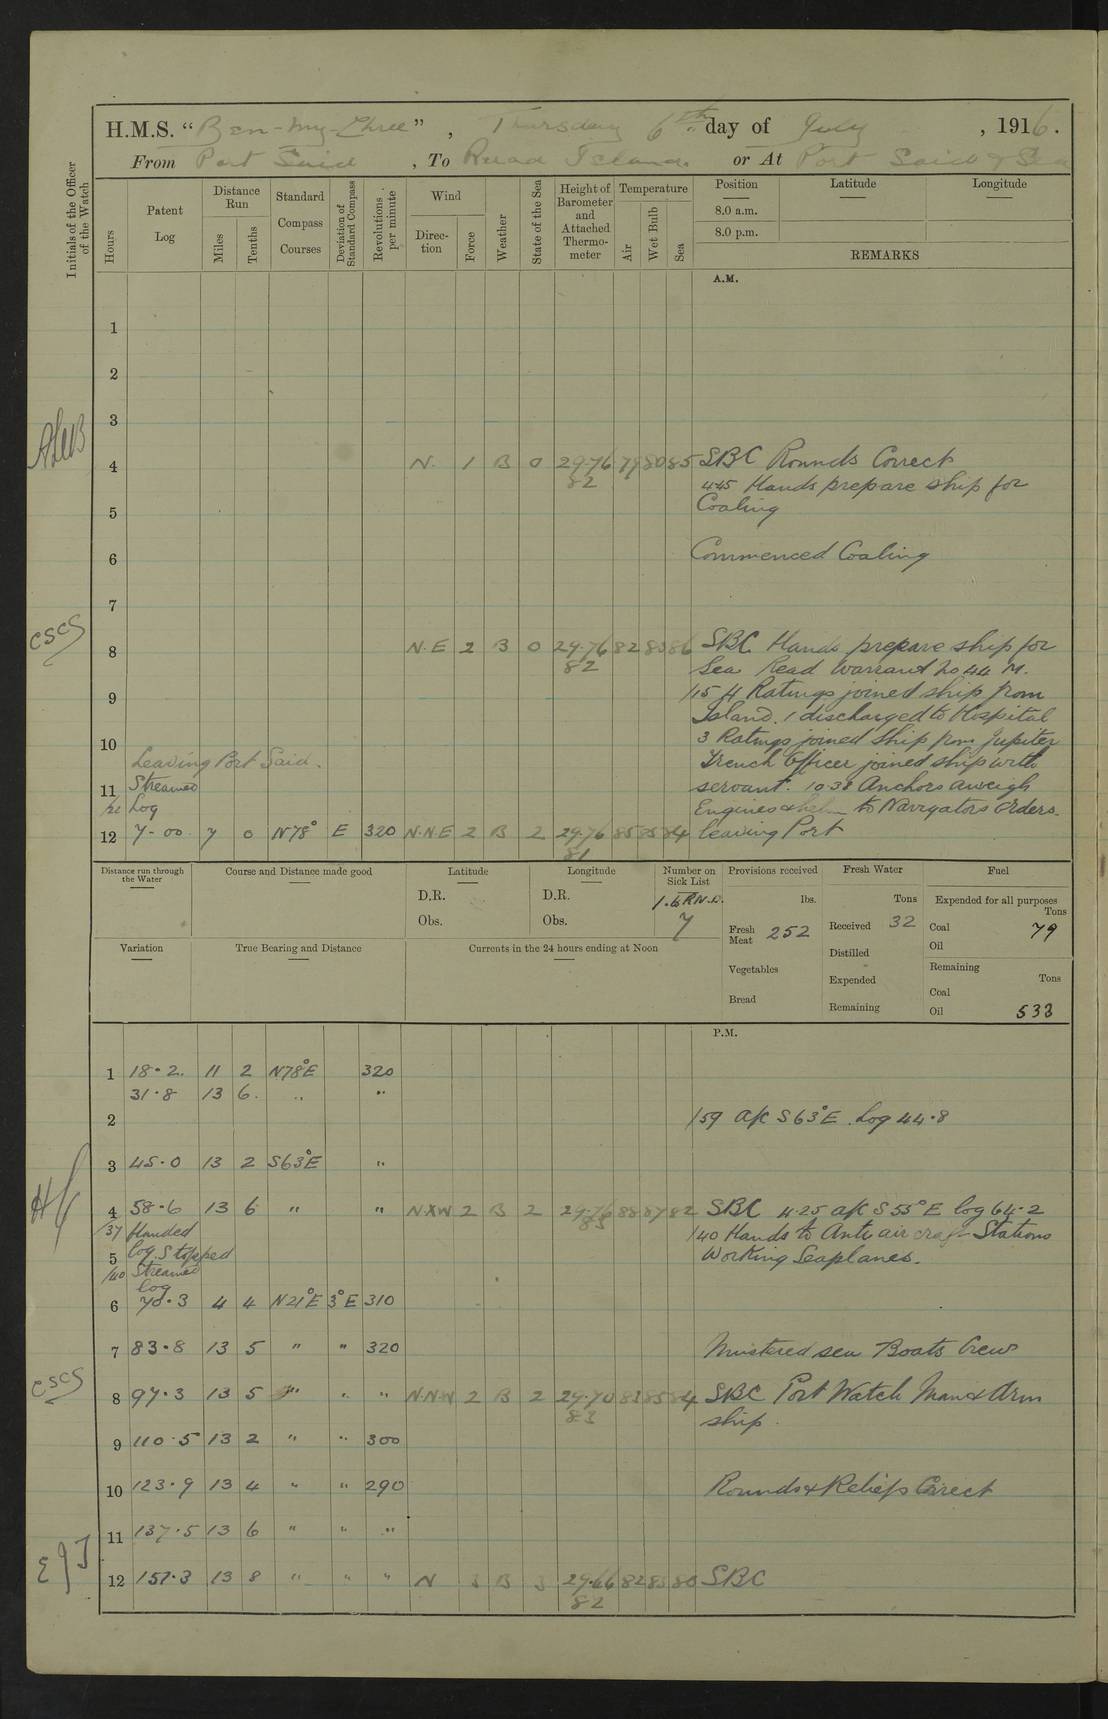 H.M.S. "Ben-my-Chree", Thursday 6th day of July, 1916.
From Port Said, To Ruad Island. or At Port Said & Sea
Initials of the Officer of the Watch
Hours
Patent Log
Distance Run
Miles
Tenths
Standard Compass Courses
Deviation of Standard Compass
Revolutions per minute
Wind
Direction
Force
Weather
State of the Sea
Height of Barometer and Attached Thermometer
Temperature
Air
Wet Bulb
Sea
Position
8.0 a.m.
8.0 p.m.
Latitude
Longitude
REMARKS
A.M.
1
2
3
4 N. 1 B 0 29.76 79 80 85 SBC Rounds Correct
82
445 Hands prepare ship for
5 Coaling
6 Commenced Coaling
7
CSCS
8 N.E 2 B 0 29.76 82 83 86 SBC Hands prepare ship for
82
Sea. Read Warrant No 44 M.
9 /15 4 Ratings joined ship from
Island. 1 discharged to Hospital
10 3 Ratings joined ship from Jupiter
Leaving Port Said. French Officer joined ship with
11 Streamed servant. 10.38 Anchors aweigh
Log Engines & helm to Navigators orders.
12 7.00 7 0 N78° E 320 N.N.E 2 B 2 29.76 85 84 leaving Port
81
Distance run through the Water
Course and Distance made good
Latitude
D.R.
Obs.
Longitude
D.R.
Obs.
Number on Sick List
7
Provisions received
lbs.
Fresh Meat 252
Vegetables
Bread
Fresh Water
Tons
Received 32
Distilled
Expended
Remaining
Fuel
Expended for all purposes
Tons
Coal 79
Oil
Remaining
Tons
Coal
Oil 533
Variation
True Bearing and Distance
Currents in the 24 hours ending at Noon
P.M.
1 18.2. 11 2 N78°E 320
31.8 13 6. " "
2 /59 a/c S63°E. Log 44.8
3 45.0 13 2 S63°E "
4 58.6 13 6 " " N.XW 2 B 2 29.76 88 87 82 SBC 4.25 a/c S55°E log 64.2
83
/37 Handed /40 Hands to Anti air craft Stations
5 log. Stopped Working Seaplanes.
/40 Streamed
log
6 70.3 4 4 N21°E 3°E 310
7 83.8 13 5 " " 320 Mustered sea Boats Crew
CSCS
8 97.3 13 5 " " " N.N.W 2 B 2 29.70 83 85 84 SBC Port Watch Man & Arm
83
ship.
9 110.5 13 2 " " 300
10 123.9 13 4 " " 290 Rounds & Reliefs Correct
11 137.5 13 6 " " "
12 151.3 13 8 " " " N 3 B 3 29.66 82 83 80 SBC
82